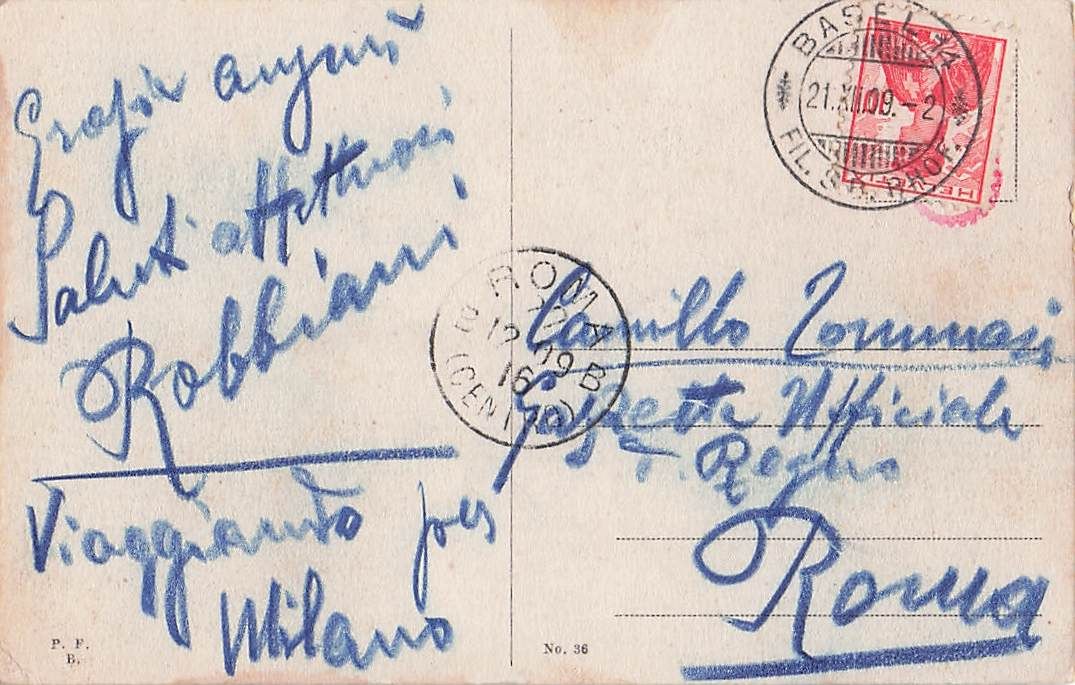 Grazie auguri
Saluti affettuosi
Robbiani
Viaggiando per
Milano
P. F.
B.
No. 36
BASEL 14
21.XII.09.-2
FIL. ST. RHOF.
HELVETIA
ROMA
12 09
16
(CENTRO)
B
Camillo Tommasi
Gazzetta Ufficiale
Regno
Roma